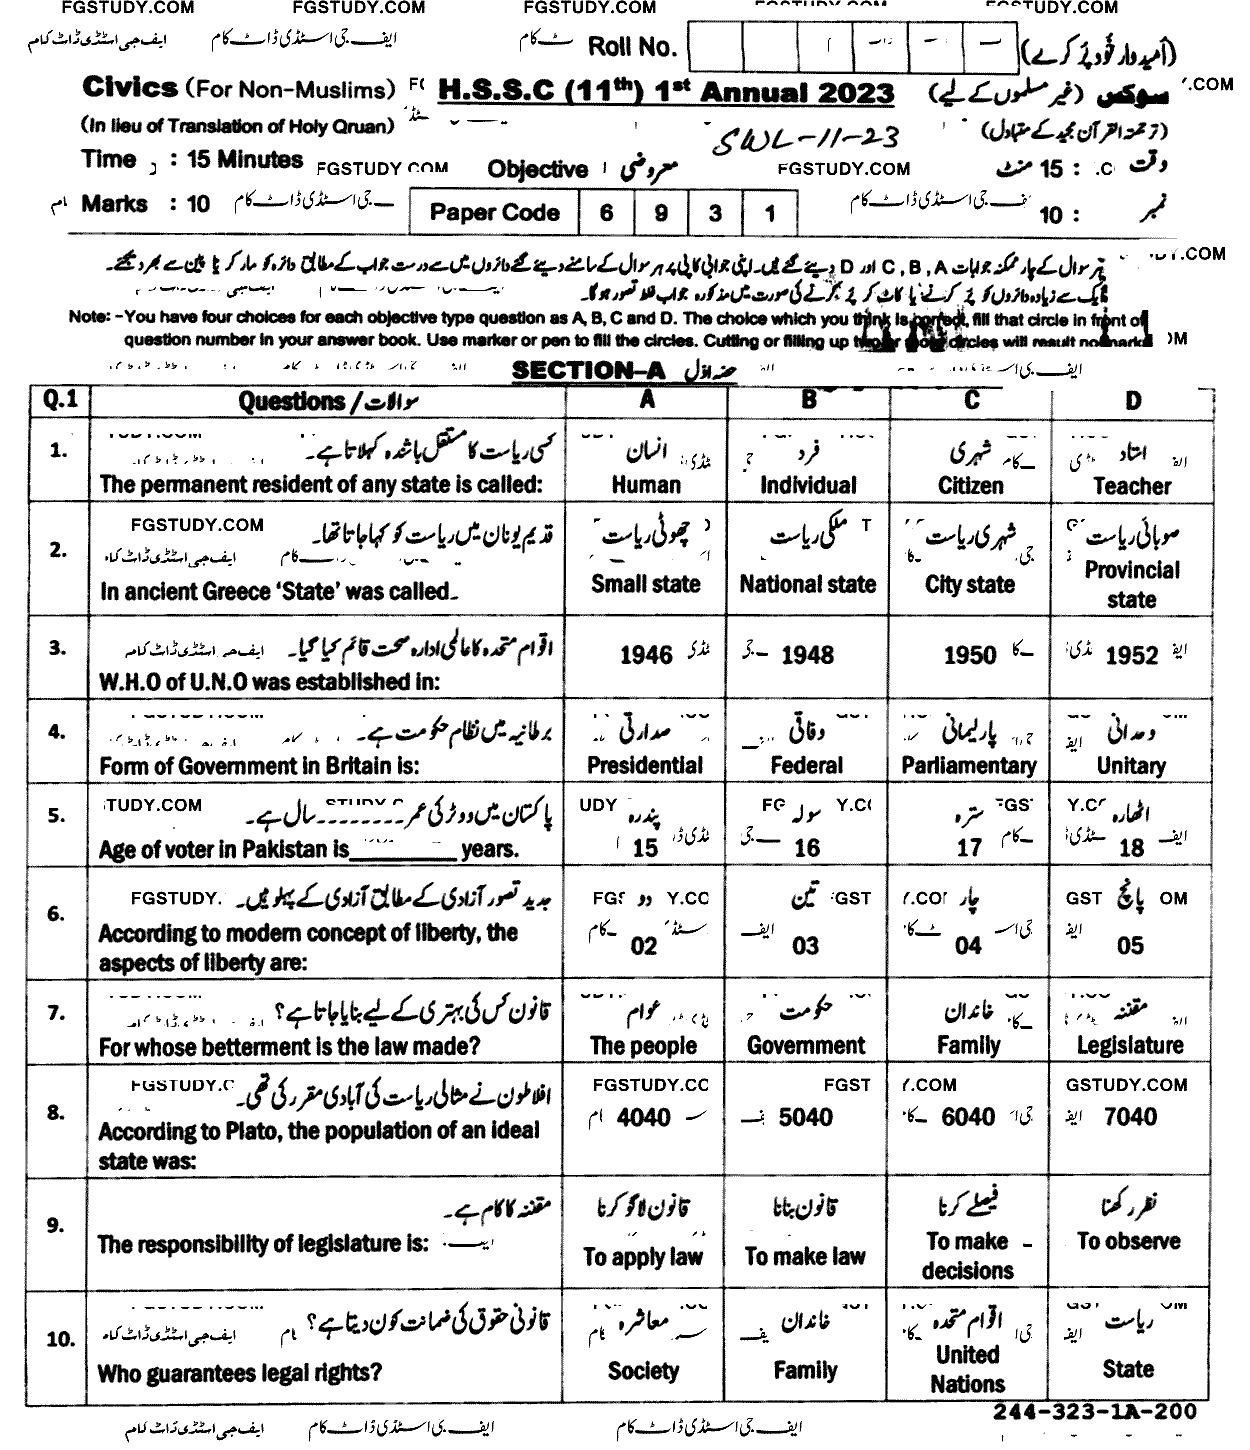 FGSTUDY.COM FGSTUDY.COM FGSTUDY.COM
ایف جی اسٹڈی ڈاٹ کام ایف جی اسٹڈی ڈاٹ کام Roll No. (امیدوار خود پُر کرے)
Civics (For Non-Muslims) H.S.S.C (11th) 1st Annual 2023 سوکس (غیر مسلموں کے لیے)
(In lieu of Translation of Holy Qruan) SWL-11-23 (ترجمۃ القرآن مجید کے متبادل)
Time : 15 Minutes FGSTUDY.COM Objective معروضی FGSTUDY.COM وقت : 15 منٹ
Marks : 10 Paper Code 6 9 3 1 نمبر : 10
ہر سوال کے چار ممکنہ جوابات A, B, C اور D دیئے گئے ہیں۔ اپنی جوابی کاپی پر ہر سوال کے سامنے دیئے گئے دائروں میں سے درست جواب کے مطابق دائرہ کو مارکر یا پین سے بھر دیجئے۔
ایک سے زیادہ دائروں کو پُر کرنے یا کاٹ کر پُر کرنے کی صورت میں مذکورہ جواب غلط تصور ہو گا۔
Note: -You have four choices for each objective type question as A, B, C and D. The choice which you think is correct, fill that circle in front of
question number in your answer book. Use marker or pen to fill the circles. Cutting or filling up two or more circles will result no mark
SECTION-A حصہ اوّل
Q.1 Questions / سوالات A B C D
1. کسی ریاست کا مستقل باشندہ کہلاتا ہے۔ انسان فرد شہری استاد
The permanent resident of any state is called: Human Individual Citizen Teacher
FGSTUDY.COM
2. قدیم یونان میں ریاست کو کہا جاتا تھا۔ چھوٹی ریاست ملکی ریاست شہری ریاست صوبائی ریاست
In ancient Greece ‘State’ was called. Small state National state City state Provincial state
3. اقوام متحدہ کا عالمی ادارہ صحت قائم کیا گیا۔
W.H.O of U.N.O was established in: 1946 1948 1950 1952
4. برطانیہ میں نظام حکومت ہے۔ صدارتی وفاقی پارلیمانی وحدانی
Form of Government in Britain is: Presidential Federal Parliamentary Unitary
5. پاکستان میں ووٹر کی عمر ........ سال ہے۔ پندرہ سولہ سترہ اٹھارہ
Age of voter in Pakistan is__________ years. 15 16 17 18
6. جدید تصور آزادی کے مطابق آزادی کے پہلو ہیں۔ دو تین چار پانچ
According to modern concept of liberty, the 02 03 04 05
aspects of liberty are:
7. قانون کس کی بہتری کے لیے بنایا جاتا ہے؟ عوام حکومت خاندان مقننہ
For whose betterment is the law made? The people Government Family Legislature
8. افلاطون نے مثالی ریاست کی آبادی مقرر کی تھی۔
According to Plato, the population of an ideal 4040 5040 6040 7040
state was:
9. مقننہ کا کام ہے۔ قانون لاگو کرنا قانون بنانا فیصلے کرنا نظر رکھنا
The responsibility of legislature is: To apply law To make law To make decisions To observe
10. قانونی حقوق کی ضمانت کون دیتا ہے؟ معاشرہ خاندان اقوام متحدہ ریاست
Who guarantees legal rights? Society Family United Nations State
244-323-1A-200
ایف جی اسٹڈی ڈاٹ کام ایف جی اسٹڈی ڈاٹ کام ایف جی اسٹڈی ڈاٹ کام